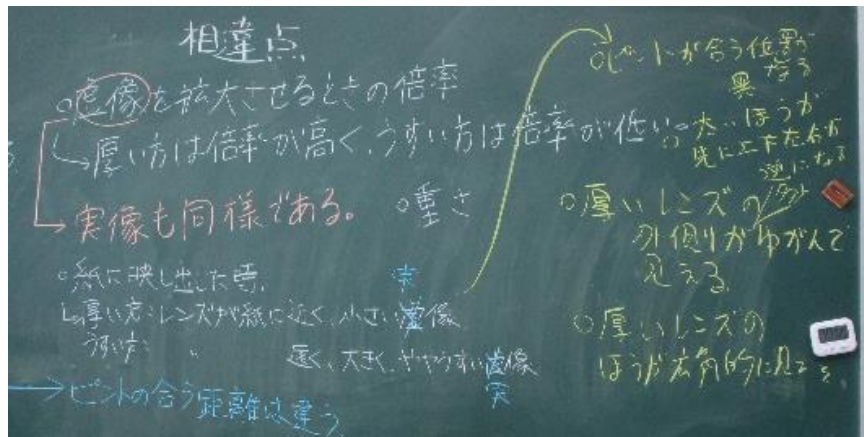 相違点
○虚像を拡大させるときの倍率
↳厚い方は倍率が高く、うすい方は倍率が低い。
→実像も同様である。
○重さ
○紙に映し出した時、
↳厚い方:レンズが紙に近く、小さい虚像
実
うすい方: 〃 遠く、大きく、ややうすい虚像
実
→ピントの合う距離は違う
○ピントが合う位置が
異なる
○大いほうが
先に上下左右が
逆になる
○厚いレンズの
外側りがゆがんで
見える
○厚いレンズの
ほうが広角的に見